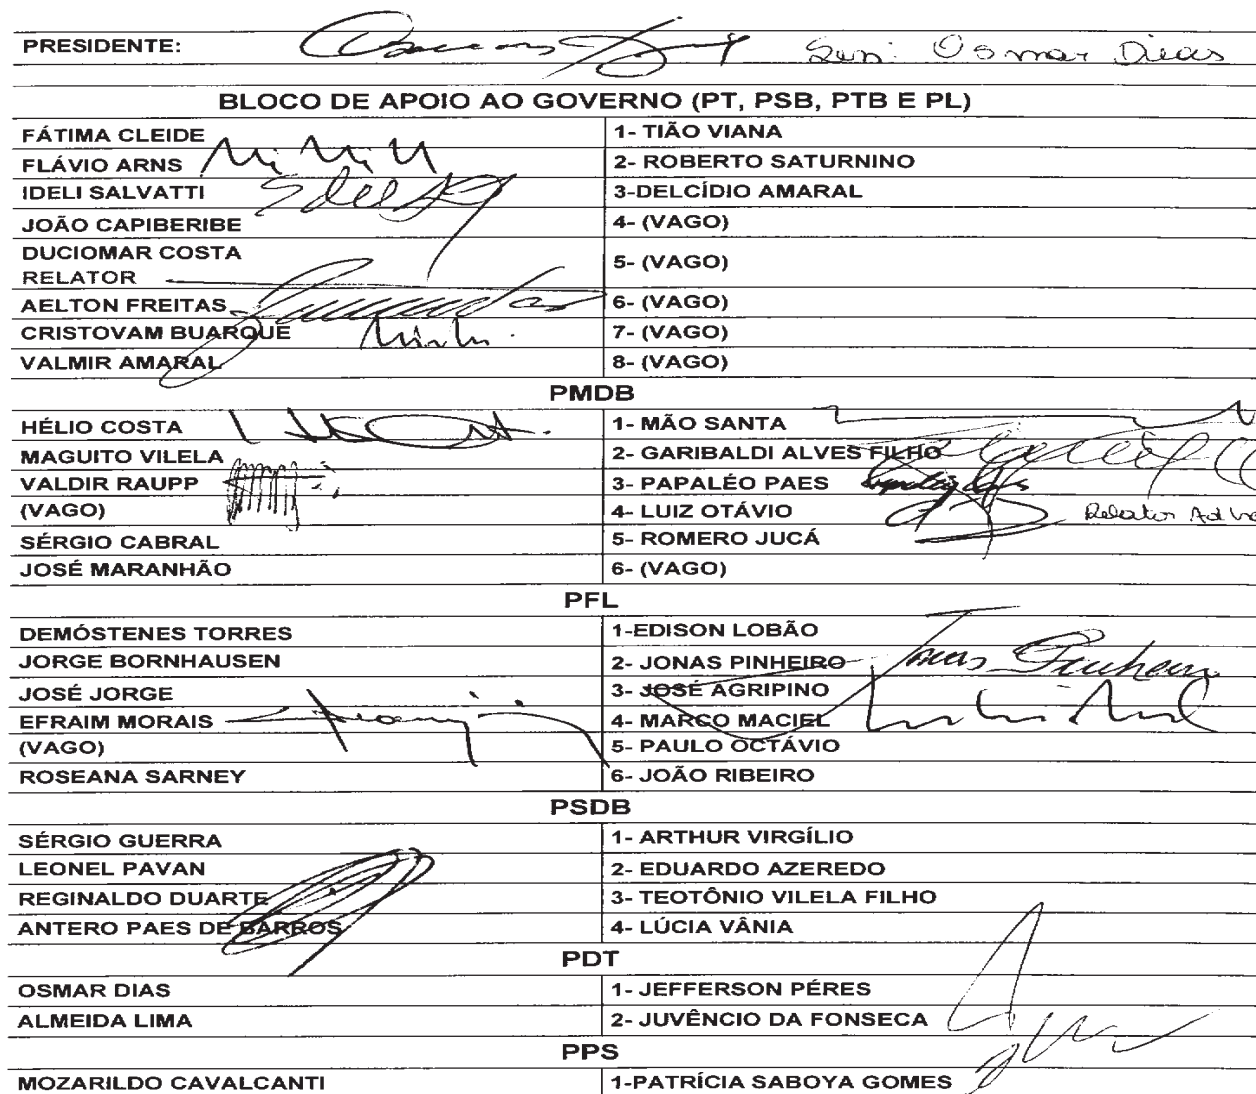 PRESIDENTE: Sen: Osmar Dias
BLOCO DE APOIO AO GOVERNO (PT, PSB, PTB E PL)
FÁTIMA CLEIDE 1- TIÃO VIANA
FLÁVIO ARNS 2- ROBERTO SATURNINO
IDELI SALVATTI 3-DELCÍDIO AMARAL
JOÃO CAPIBERIBE 4- (VAGO)
DUCIOMAR COSTA
RELATOR 5- (VAGO)
AELTON FREITAS 6- (VAGO)
CRISTOVAM BUARQUE 7- (VAGO)
VALMIR AMARAL 8- (VAGO)
PMDB
HÉLIO COSTA 1- MÃO SANTA
MAGUITO VILELA 2- GARIBALDI ALVES FILHO
VALDIR RAUPP 3- PAPALÉO PAES
(VAGO) 4- LUIZ OTÁVIO Relator
SÉRGIO CABRAL 5- ROMERO JUCÁ
JOSÉ MARANHÃO 6- (VAGO)
PFL
DEMÓSTENES TORRES 1-EDISON LOBÃO
JORGE BORNHAUSEN 2- JONAS PINHEIRO Jonas Pinheiro
JOSÉ JORGE 3- JOSÉ AGRIPINO
EFRAIM MORAIS 4- MARCO MACIEL
(VAGO) 5- PAULO OCTÁVIO
ROSEANA SARNEY 6- JOÃO RIBEIRO
PSDB
SÉRGIO GUERRA 1- ARTHUR VIRGÍLIO
LEONEL PAVAN 2- EDUARDO AZEREDO
REGINALDO DUARTE 3- TEOTÔNIO VILELA FILHO
ANTERO PAES DE BARROS 4- LÚCIA VÂNIA
PDT
OSMAR DIAS 1- JEFFERSON PÉRES
ALMEIDA LIMA 2- JUVÊNCIO DA FONSECA
PPS
MOZARILDO CAVALCANTI 1-PATRÍCIA SABOYA GOMES